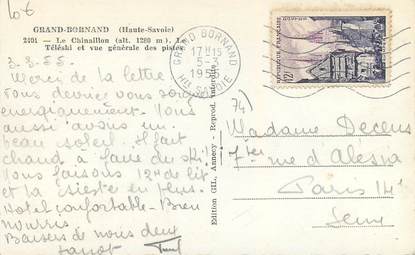 10€
GRAND-BORNAND (Haute-Savoie)
2401 - Le Chinaillon (alt. 1280 m). Le
Téléski et vue générale des pistes
3.3.55.
Merci de la lettre.
Vous devriez vous
energiquement. Nous
aussi avons un
beau soleil. Il fait
chaud à faire du ski!
Nous faisons 12h de lit
et la sieste en plus.
Hotel confortable - Bien
nourris
Baisers de nous deux
Edition GIL, Annecy - Reprod. interdite
GRAND BORNAND
17H15
5-3
1955
HTE SAVOIE
POSTES
REPUBLIQUE FRANÇAISE
QUIMPER
12F
74)
Madame
7 ter rue d'Alésia
Paris 14e
Seine